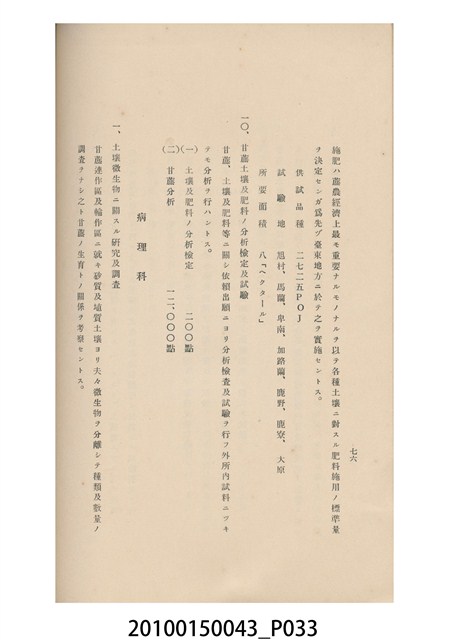 七六
施肥ハ蔗農經濟上最モ重要ナルモノナルヲ以テ各種土壤ニ對スル肥料施用ノ標準量
ヲ決定センガ爲先ヅ臺東地方ニ於テ之ヲ實施セントス。
供試品種 二七二五POJ
試驗地 旭村、馬蘭、卑南、加路蘭、鹿野、鹿寮、大原
所要面積 八「ヘクタール」
一〇、甘蔗土壤及肥料ノ分析檢定及試驗
甘蔗、土壤及肥料等ニ關シ依賴出願ニヨリ分析檢査及試驗ヲ行フ外所內試料ニツキ
テモ分析ヲ行ハントス。
(一) 土壤及肥料ノ分析檢定 二〇〇點
(二) 甘蔗分析 一二、〇〇〇點
病理科
一、土壤微生物ニ關スル硏究及調査
甘蔗連作區及輪作區ニ就キ砂質及埴質土壤ヨリ夫々微生物ヲ分離シテ種類及數量ノ
調査ヲナシ之ト甘蔗ノ生育トノ關係ヲ考察セントス。
20100150043_P033